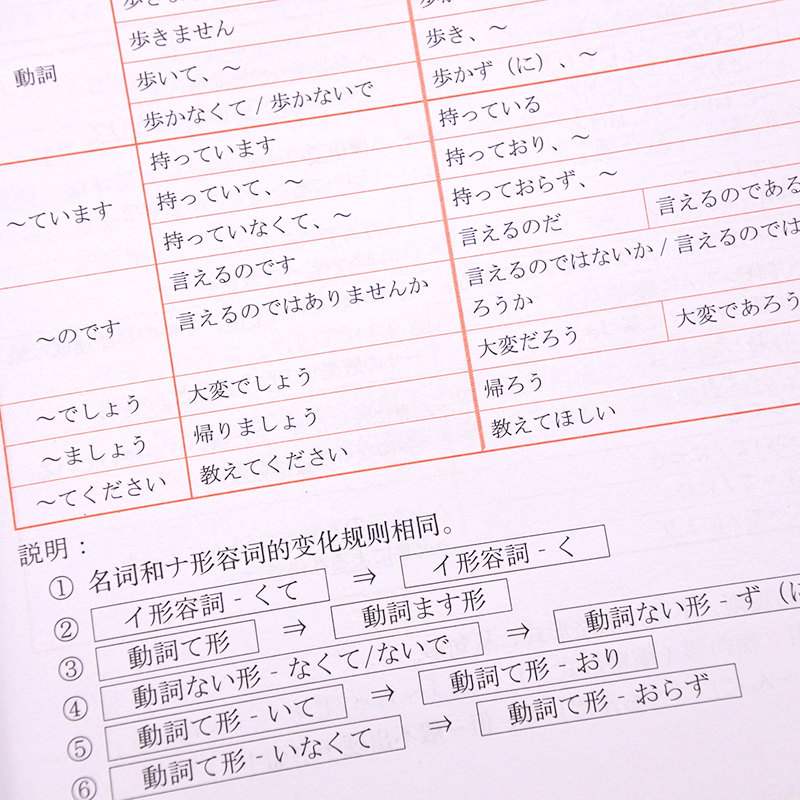 歩きません
歩き、～
動詞
歩いて、～
歩かず（に）、～
歩かなくて / 歩かないで
持っている
～ています
持っています
持っており、～
持っていて、～
持っておらず、～
持っていなくて、～
言えるのだ
言えるのである
～のです
言えるのです
言えるのではないか / 言えるのでは
ろうか
言えるのではありませんか
大変だろう
大変であろう
～でしょう
大変でしょう
帰ろう
～ましょう
帰りましょう
教えてほしい
～てください
教えてください
説明：
① 名词和ナ形容词的变化规则相同。
② イ形容詞 - くて ⇒ イ形容詞 - く
③ 動詞て形 ⇒ 動詞ます形
④ 動詞ない形 - なくて/ないで ⇒ 動詞ない形 - ず（に
⑤ 動詞て形 - いて ⇒ 動詞て形 - おり
⑥ 動詞て形 - いなくて ⇒ 動詞て形 - おらず